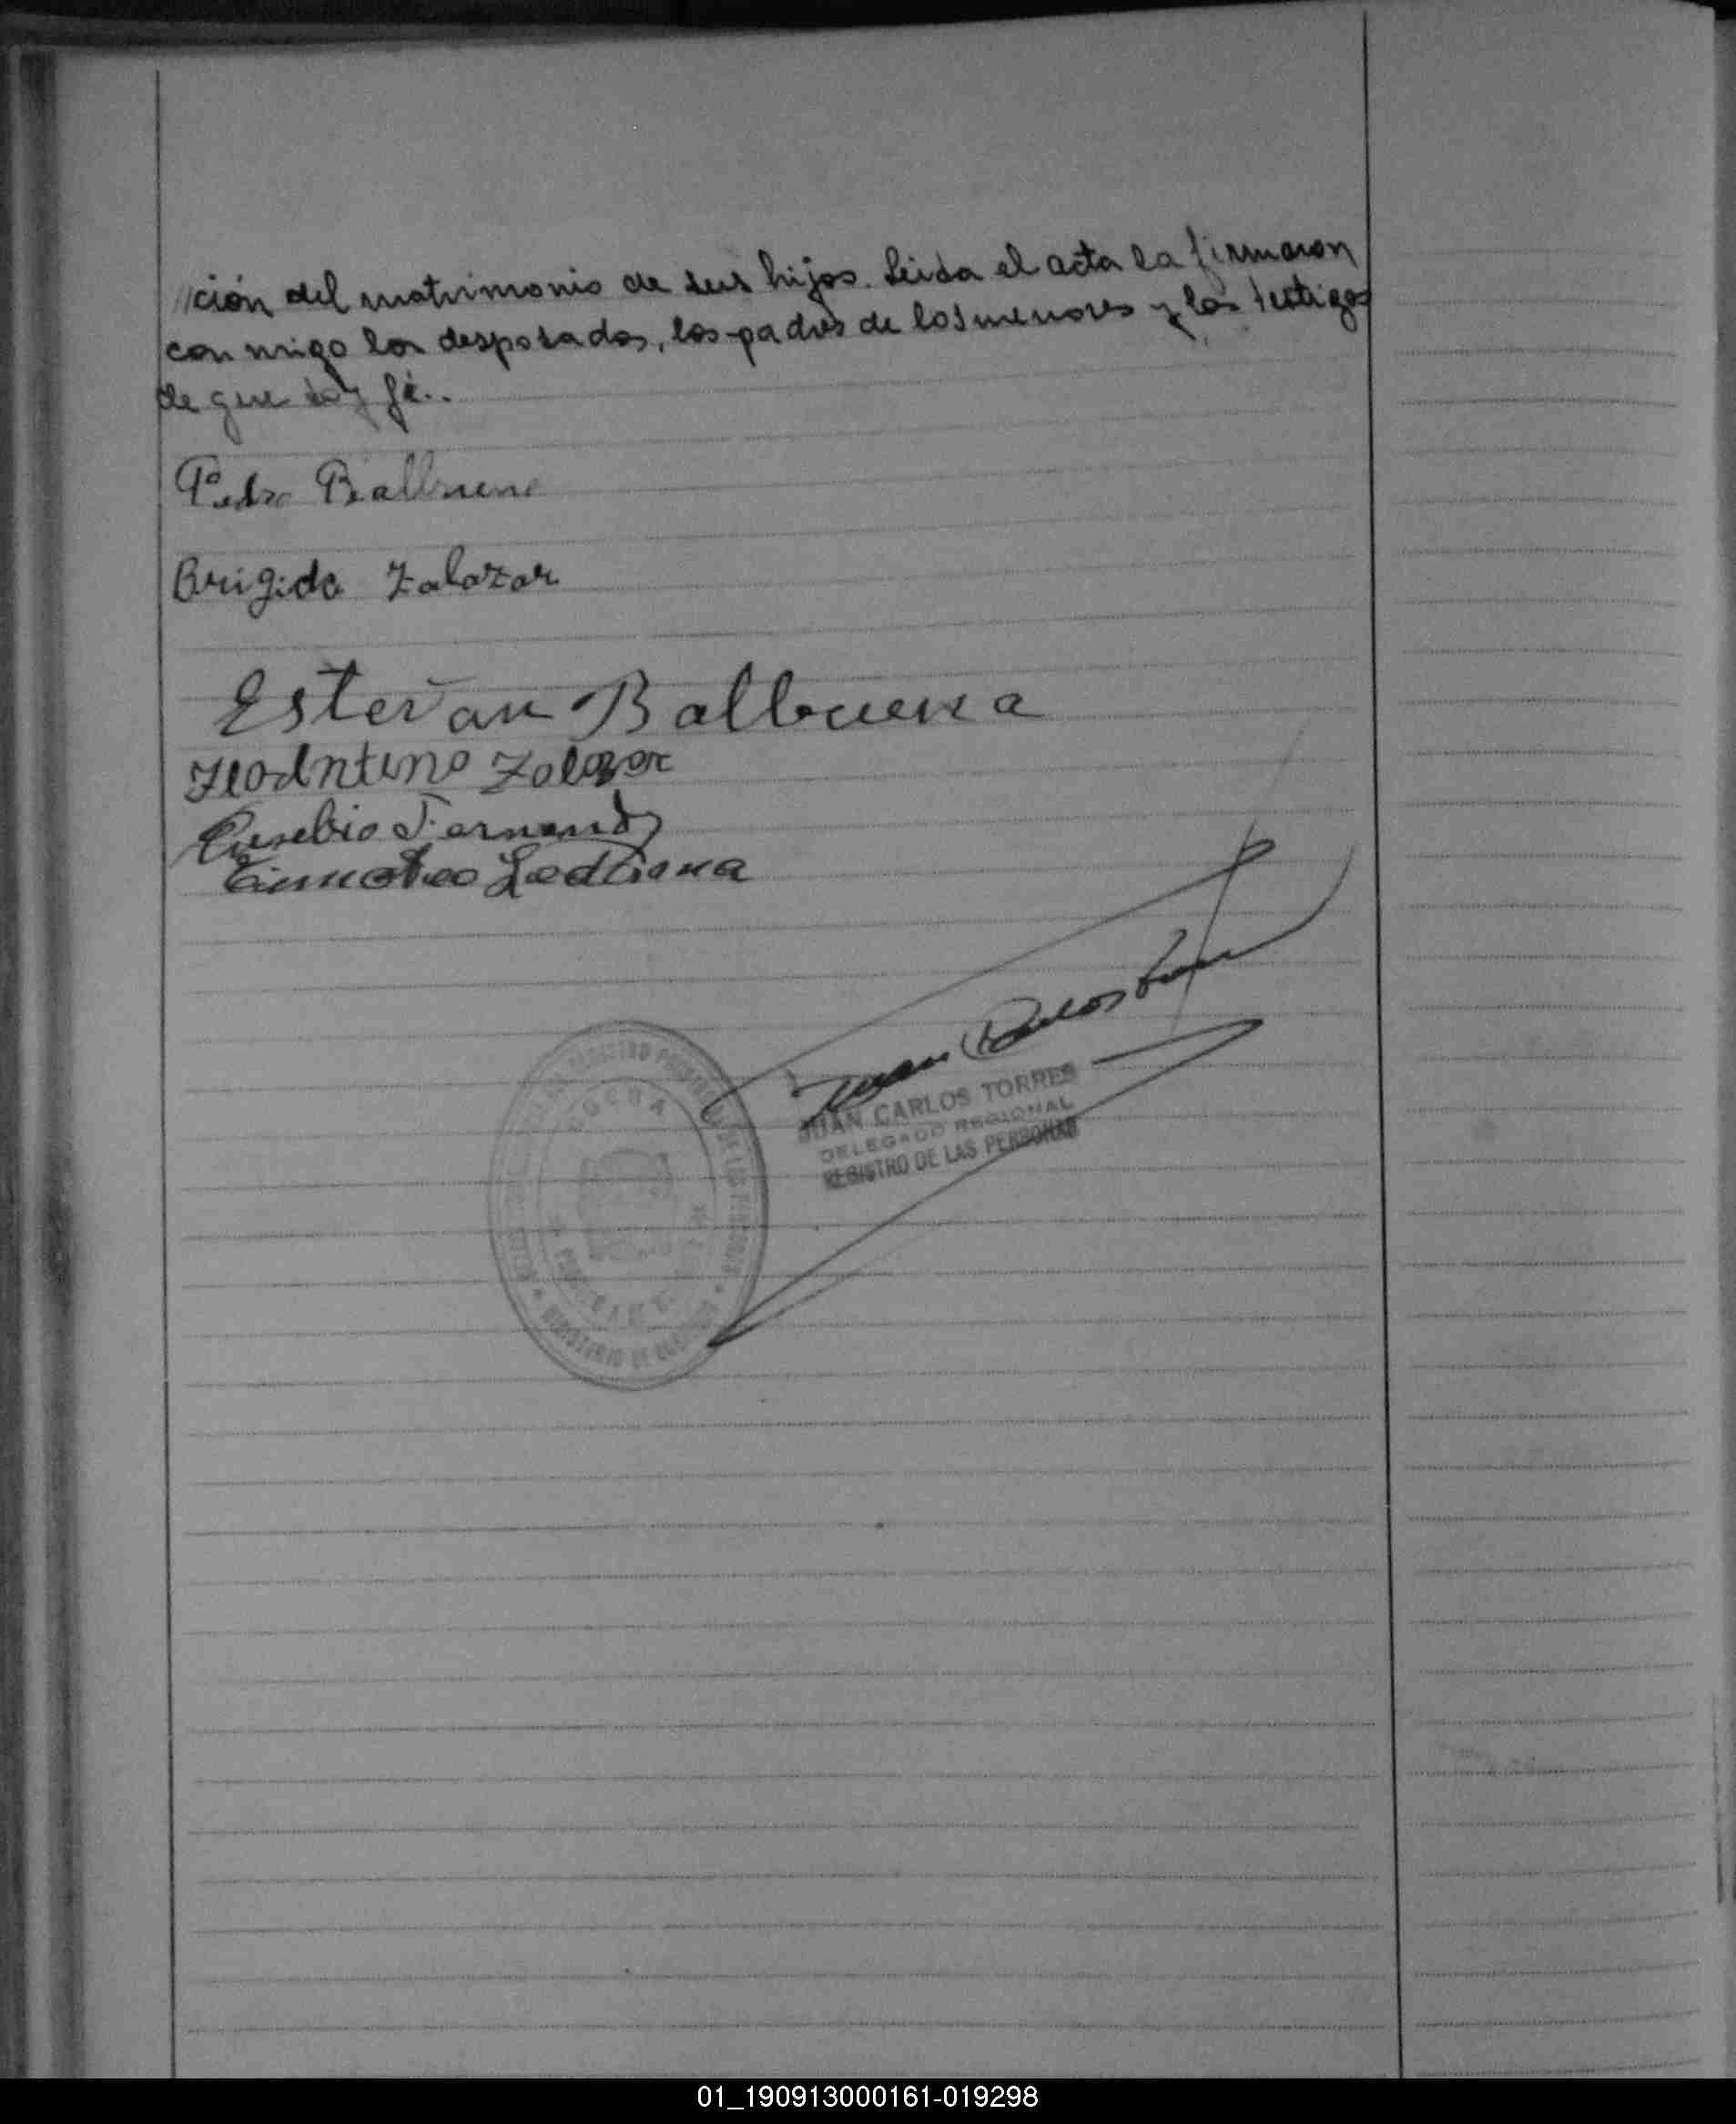 //ción del matrimonio de sus hijos. Leida el acta la firmaron
con migo los desposados, los padres de los menores y los testigos
de que doy fé..
Pedro Balbuena
Brigida Zalazar
Estevan Balbuena
Zalazar
Eusebio
Timoteo
Juan Carlos Torres
JUAN CARLOS TORRES
DELEGADO REGIONAL
REGISTRO DE LAS PERSONAS
REGISTRO PROVINCIAL DE LAS PERSONAS
MINISTERIO DE GOBIERNO
01_190913000161-019298